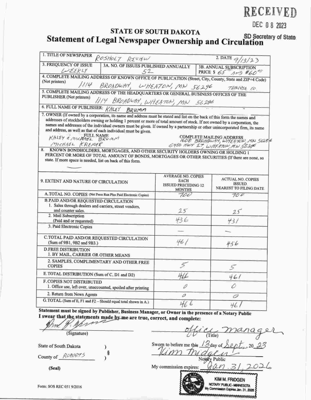 RECEIVED
DEC 08 2023
SD Secretary of State
STATE OF SOUTH DAKOTA
Statement of Legal Newspaper Ownership and Circulation
1. TITLE OF NEWSPAPER
ROSHOLT REVIEW
2. DATE
3. FREQUENCY OF ISSUE
WEEKLY
3A. NO. OF ISSUES PUBLISHED ANNUALLY
52
3B. ANNUAL SUBSCRIPTION
PRICE $
4. COMPLETE MAILING ADDRESS OF KNOWN OFFICE OF PUBLICATION (Street, City, County, State and ZIP+4 Code)
(Not printers)
1114 BROADWAY, WHEATON, MN 56296
5. COMPLETE MAILING ADDRESS OF THE HEADQUARTERS OR GENERAL BUSINESS OFFICES OF THE
PUBLISHER (Not printers)
1114 BROADWAY, WHEATON, MN 56296
6. FULL NAME OF PUBLISHER:
7. OWNER (If owned by a corporation, its name and address must be stated and list on the back of this form the names and
addresses of stockholders owning or holding 1 percent or more of total amount of stock. If not owned by a corporation, the
names and addresses of the individual owners must be given. If owned by a partnership or other unincorporated firm, its name
and address, as well as that of each individual must be given.
FULL NAME
COMPLETE MAILING ADDRESS
8. KNOWN BONDHOLDERS, MORTGAGEES, AND OTHER SECURITY HOLDERS OWNING OR HOLDING 1
PERCENT OR MORE OF TOTAL AMOUNT OF BONDS, MORTGAGES OR OTHER SECURITIES (If there are none, so
state. If more space is needed, list on back of this form.
9. EXTENT AND NATURE OF CIRCULATION
AVERAGE NO. COPIES
EACH
ISSUED PRECEDING 12
MONTHS
ACTUAL NO. COPIES
ISSUED
NEAREST TO FILING DATE
A. TOTAL NO. COPIES
900
900
B. PAID AND/OR REQUESTED CIRCULATION
1. Sales through dealers and carriers, street vendors,
and counter sales.
25
25
2. Mail Subscription
(Paid and or requested)
436
431
3. Paid Electronic Copies
C. TOTAL PAID AND/OR REQUESTED CIRCULATION
(Sum of 9B1, 9B2 and 9B3.)
461
456
D. FREE DISTRIBUTION
BY MAIL, CARRIER OR OTHER MEANS
2. SAMPLES, COMPLIMENTARY AND OTHER FREE
COPIES
5
5
E. TOTAL DISTRIBUTION (Sum of C, D1 and D2)
466
461
F. COPIES NOT DISTRIBUTED
1. Office use, left over, unaccounted, spoiled after printing
0
0
2. Return from News Agents
0
0
G. TOTAL (Sum of E, F1 and F2 - Should equal total shown in A.)
466
461
Statement must be signed by Publisher, Business Manager, or Owner in the presence of a Notary Public
I swear that the statements made by me are true, correct, and complete:
Office Manager
(Signature)
(Title)
State of South Dakota )
Sworn to before me this 13 day of Sept. 23
County of Roberts )
Kim Fridgen
Notary Public
(Seal)
My commission expires: Jan 31, 2026
KIM M. FRIDGEN
NOTARY PUBLIC-MINNESOTA
My Commission Expires Jan. 31, 2026